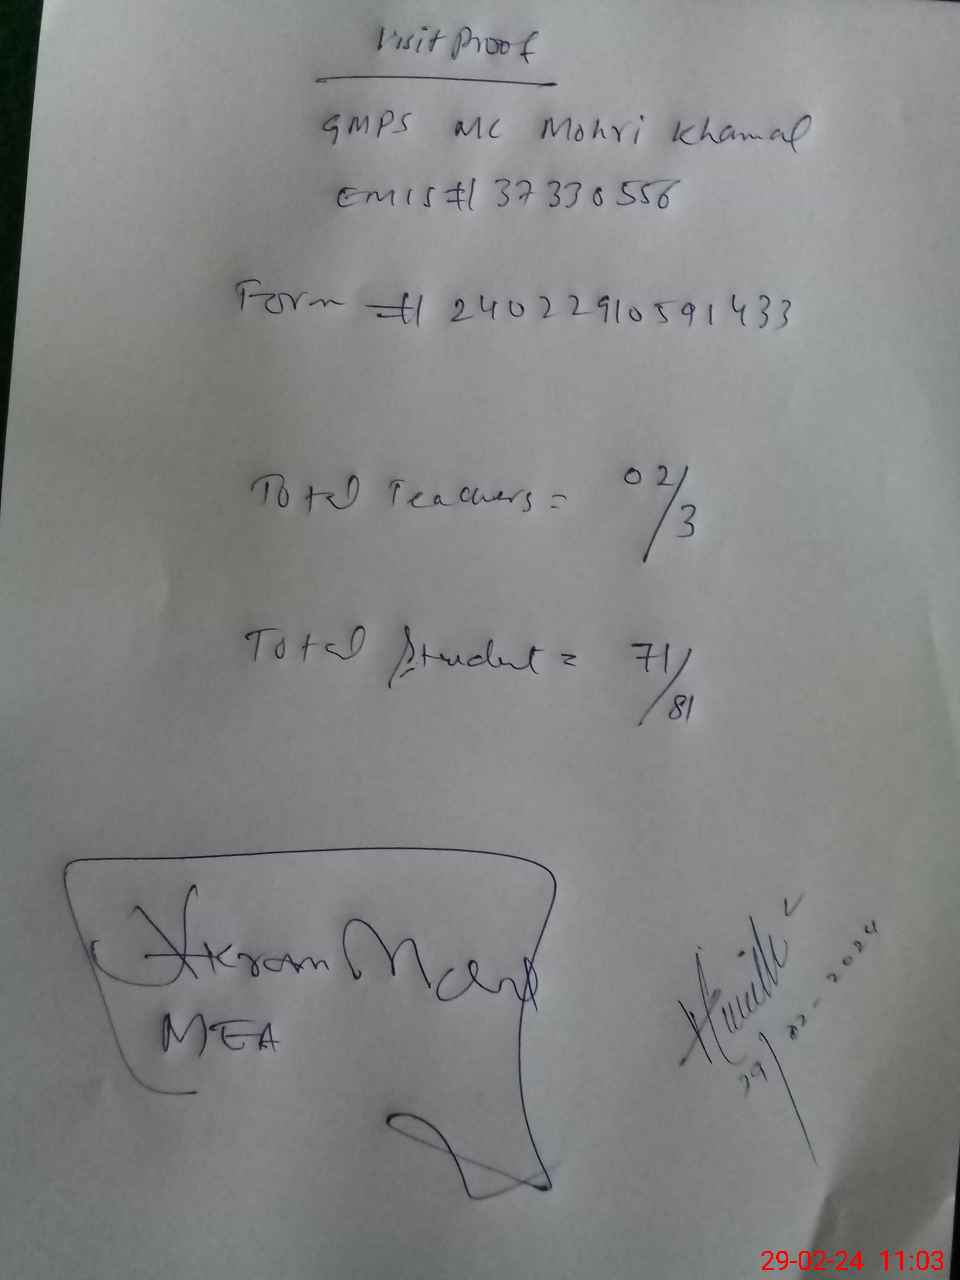 Visit Proof
GMPS MC Mohri Khamal
EMIS # 37330556
Form # 24022910591433
Total Teachers = 02/3
Total Student = 71/81
Akram
MEA
29/02-2024
29-02-24 11:03